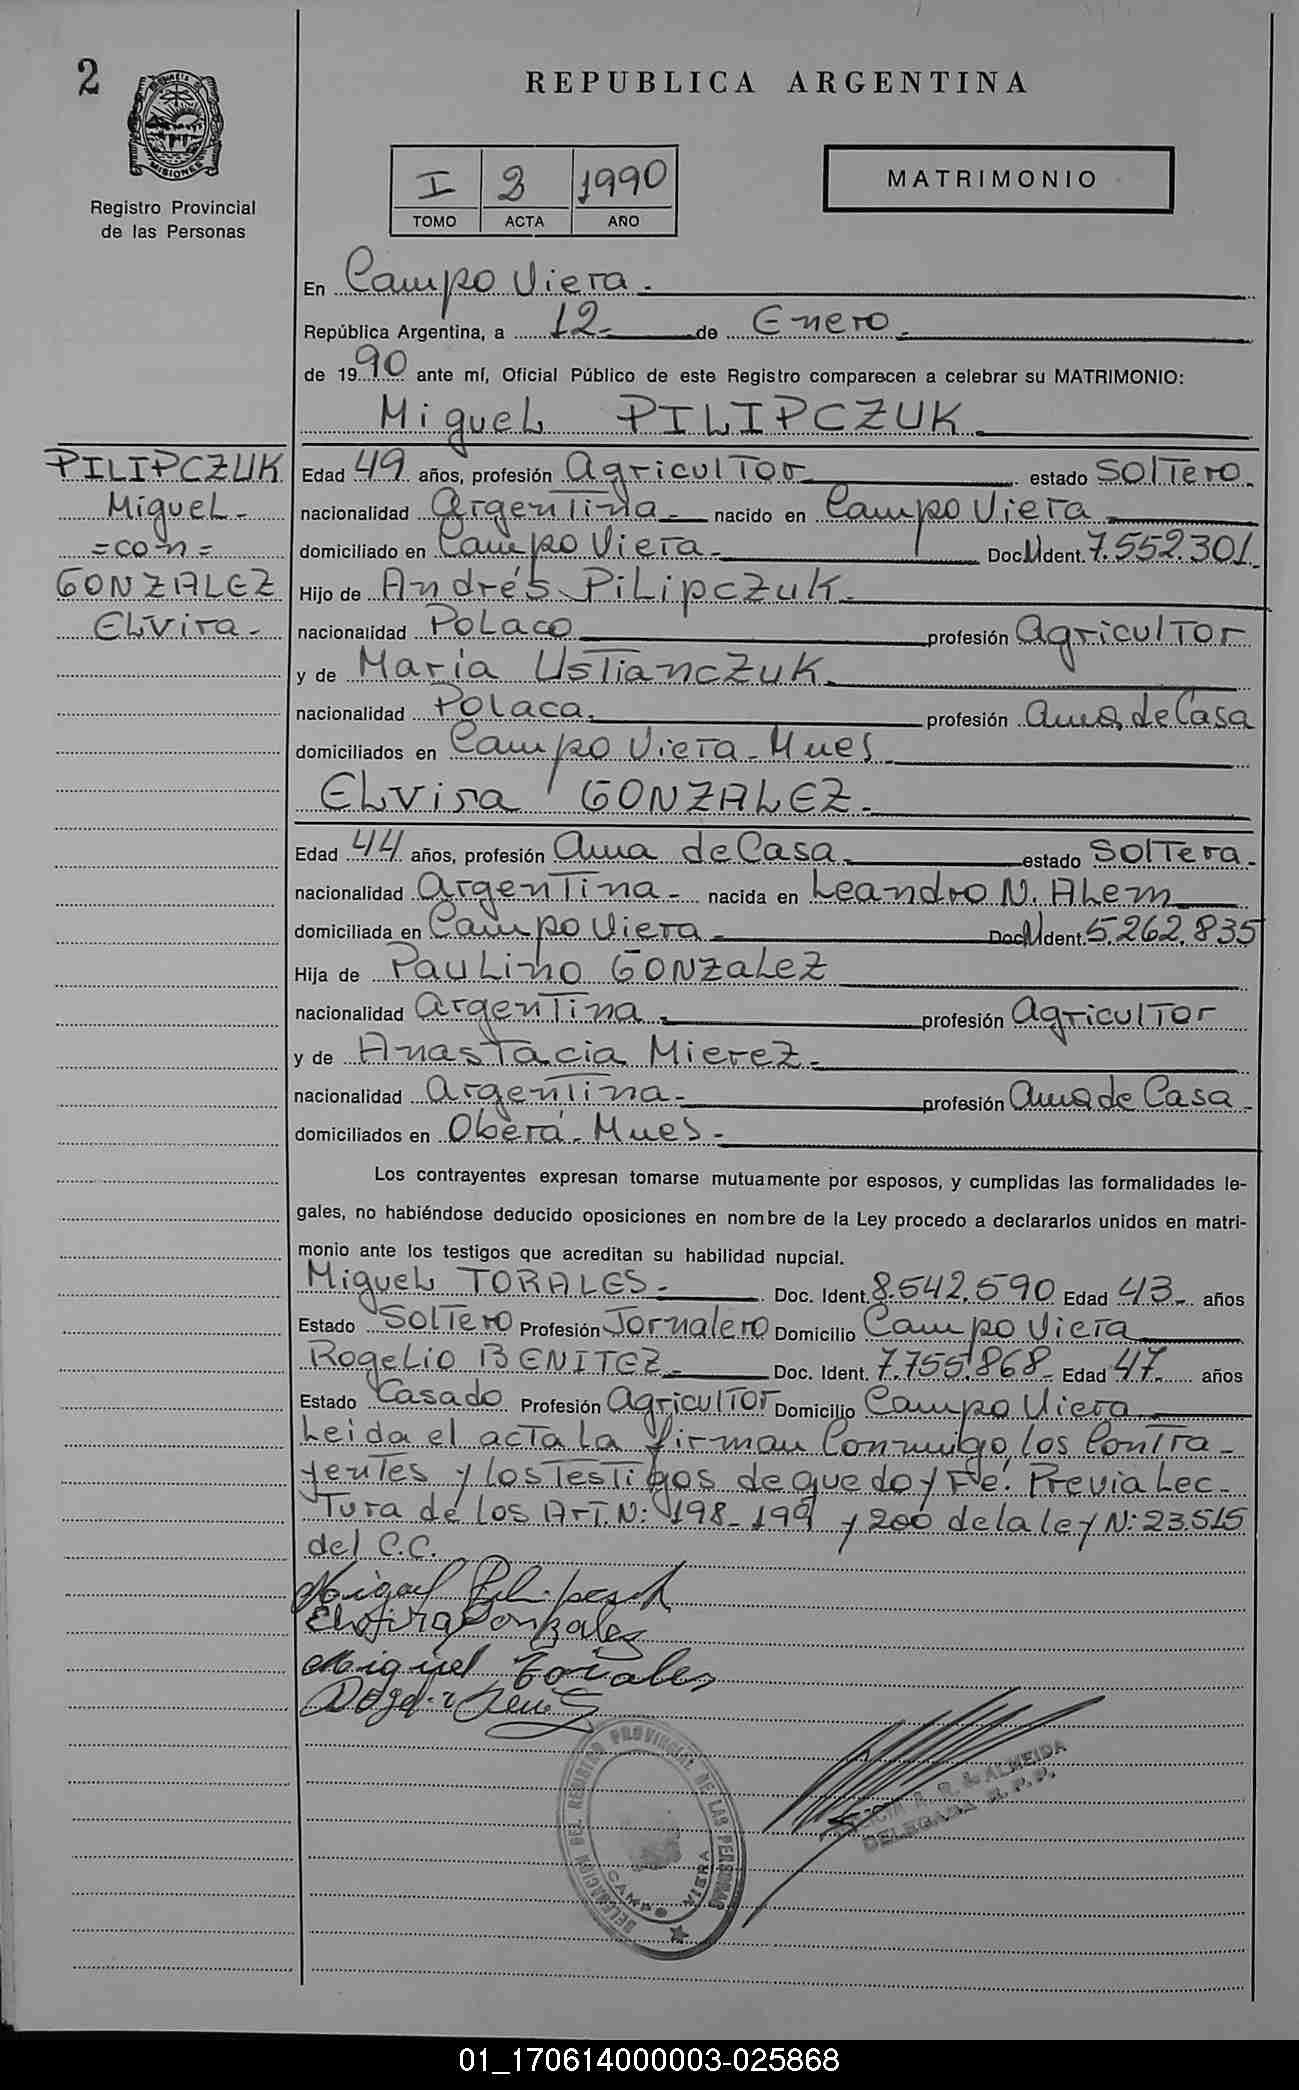 2
REPUBLICA ARGENTINA
MISIONES
Registro Provincial
de las Personas
I 2 1990
TOMO ACTA AÑO
MATRIMONIO
En Campo Viera.
República Argentina, a 12 de Enero.
de 1990 ante mí, Oficial Público de este Registro comparecen a celebrar su MATRIMONIO:
Miguel PILIPCZUK
PILIPCZUK
Miguel-
=con=
GONZALEZ
Elvira-
Edad 49 años, profesión Agricultor estado Soltero.
nacionalidad Argentina- nacido en Campo Viera
domiciliado en Campo Viera- Doc. Ident. 7.552.301
Hijo de Andrés Pilipczuk.
nacionalidad Polaco profesión Agricultor
y de Maria Ustianczuk.
nacionalidad Polaca. profesión Ama de Casa
domiciliados en Campo Viera-Mnes
Elvira GONZALEZ.
Edad 44 años, profesión Ama de Casa. estado Soltera-
nacionalidad Argentina- nacida en Leandro N. Alem
domiciliada en Campo Viera- Doc. Ident. 5.262.835
Hija de Paulino GONZALEZ
nacionalidad Argentina. profesión Agricultor
y de Anastacia Mierez-
nacionalidad Argentina- profesión Ama de Casa-
domiciliados en Oberá-Mnes-
Los contrayentes expresan tomarse mutuamente por esposos, y cumplidas las formalidades le-
gales, no habiéndose deducido oposiciones en nombre de la Ley procedo a declararlos unidos en matri-
monio ante los testigos que acreditan su habilidad nupcial.
Miguel TORALES- Doc. Ident. 8.542.590 Edad 43- años
Estado Soltero Profesión Jornalero Domicilio Campo Viera
Rogelio BENITEZ- Doc. Ident. 7.755.868- Edad 47 años
Estado Casado Profesión Agricultor Domicilio Campo Viera
Leida el acta la firman Conmigo, los Contra-
yentes y los Testigos de que doy Fé. Previa Lec-
tura de los Art. N: 198-199 y 200 de la ley N: 23.515
del C.C.
Miguel
Elvira Gonzales
Miguel Torales
DELEGACION DEL REGISTRO PROVINCIAL DE LAS PERSONAS
CAMPO VIERA
ALMEIDA
DELEGADA R. P. P.
01_170614000003-025868